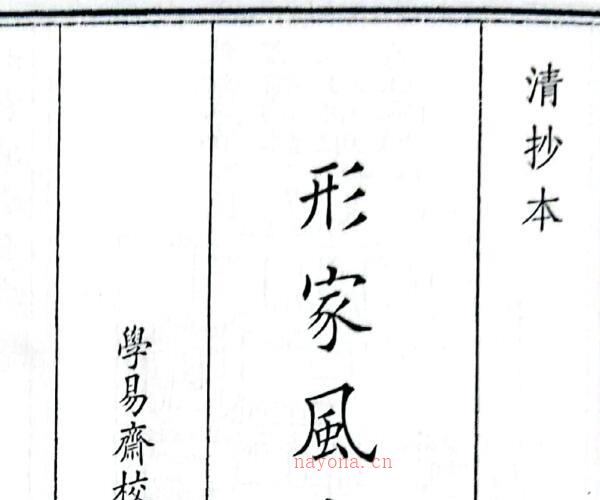 清抄本
形家風
學易齋校
nayona.cn